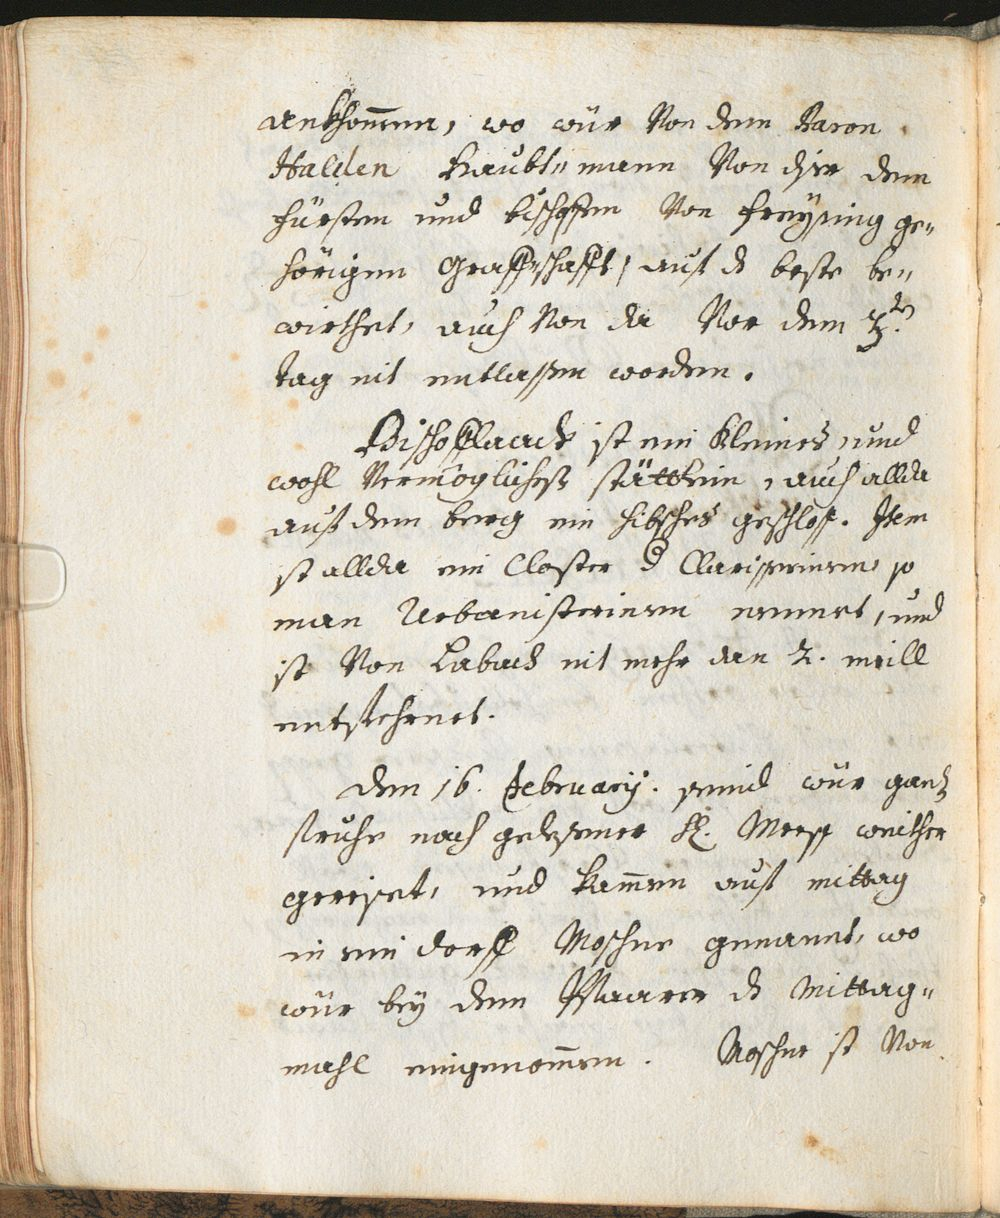 ankhommen, wo wür Von dem Baron
Halden Haubt„ mann Von diser dem
fürsten und bischoffen Von freÿsing ge„
hörigen Graffschafft, auf d beste be„
wirthet, auch Von da Vor dem 3.ten
tag nit entlassen worden.
Bischofflaack ist ein kleines, und
wohl Vermögliches stättlein, auch allda
auf dem berg ein hibsches geschloß. Item
ist allda ein Closter d Clarisserinen, so
man Urbanisterinen nennet, und
ist Von Labach nit mehr dan 2. meill
entfehrnet.
Den 16. February. seind wür gantz
fruhe nach gelesener H. Mess weither
gereiset, und kammen auf mittag
in ein dorff Moschne genannt, wo
wür beÿ dem Pfaarer d Mittag„
mahl eingenommen. Moschne ist Von